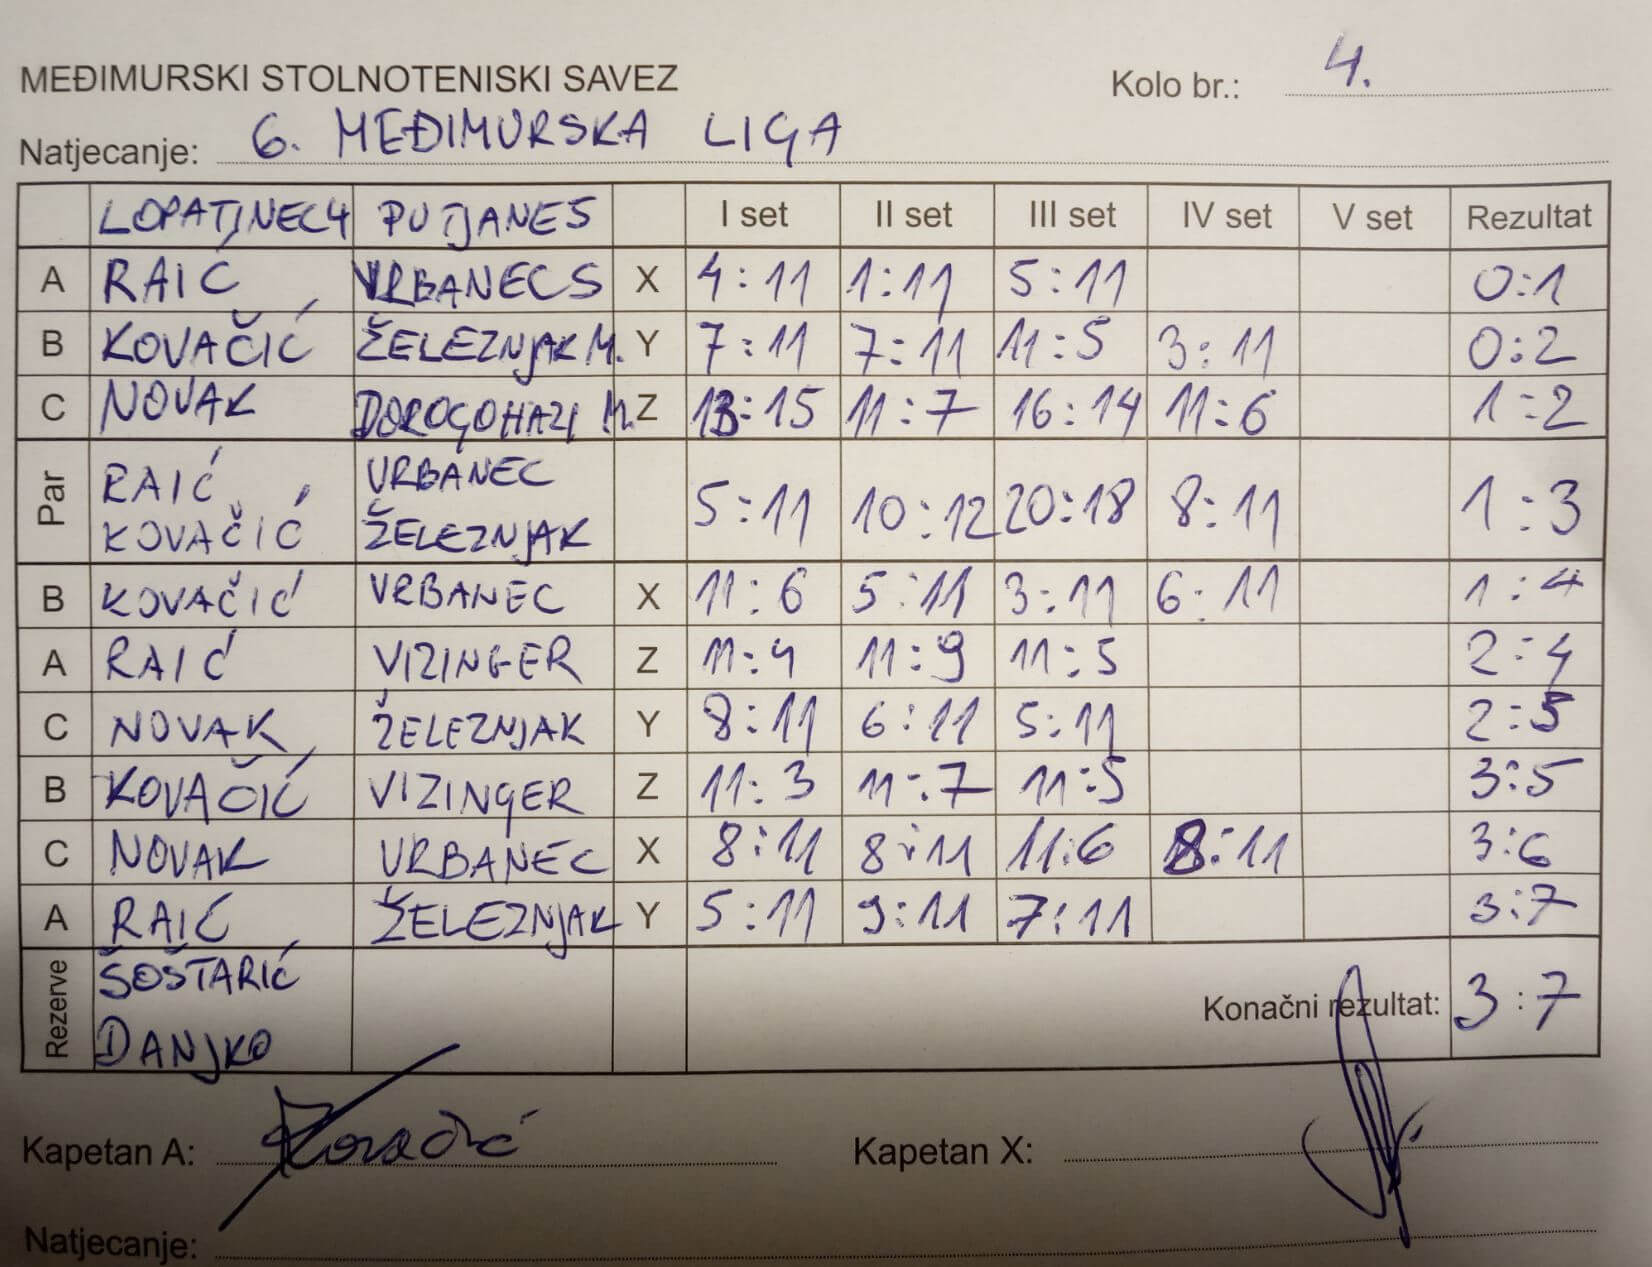 MEĐIMURSKI STOLNOTENISKI SAVEZ Kolo br.: 4.
Natjecanje: 6. MEĐIMURSKA LIGA
LOPATINEC 4 PUTJANE 5 I set II set III set IV set V set Rezultat
A RAIĆ URBANEC S X 4:11 1:11 5:11 0:1
B KOVAČIĆ ŽELEZNJAK M. Y 7:11 7:11 11:5 3:11 0:2
C NOVAK DOROGOHAZI M. Z 13:15 11:7 16:14 11:6 1:2
Par RAIĆ KOVAČIĆ URBANEC ŽELEZNJAK 5:11 10:12 20:18 8:11 1:3
B KOVAČIĆ URBANEC X 11:6 5:11 3:11 6:11 1:4
A RAIĆ VIZINGER Z 11:4 11:9 11:5 2:4
C NOVAK ŽELEZNJAK Y 8:11 6:11 5:11 2:5
B KOVAČIĆ VIZINGER Z 11:3 11:7 11:5 3:5
C NOVAK URBANEC X 8:11 8:11 11:6 8:11 3:6
A RAIĆ ŽELEZNJAK Y 5:11 9:11 7:11 3:7
Rezerve ŠOŠTARIĆ
DANJKO Konačni rezultat: 3:7
Kapetan A: Kovačić Kapetan X:
Natjecanje: